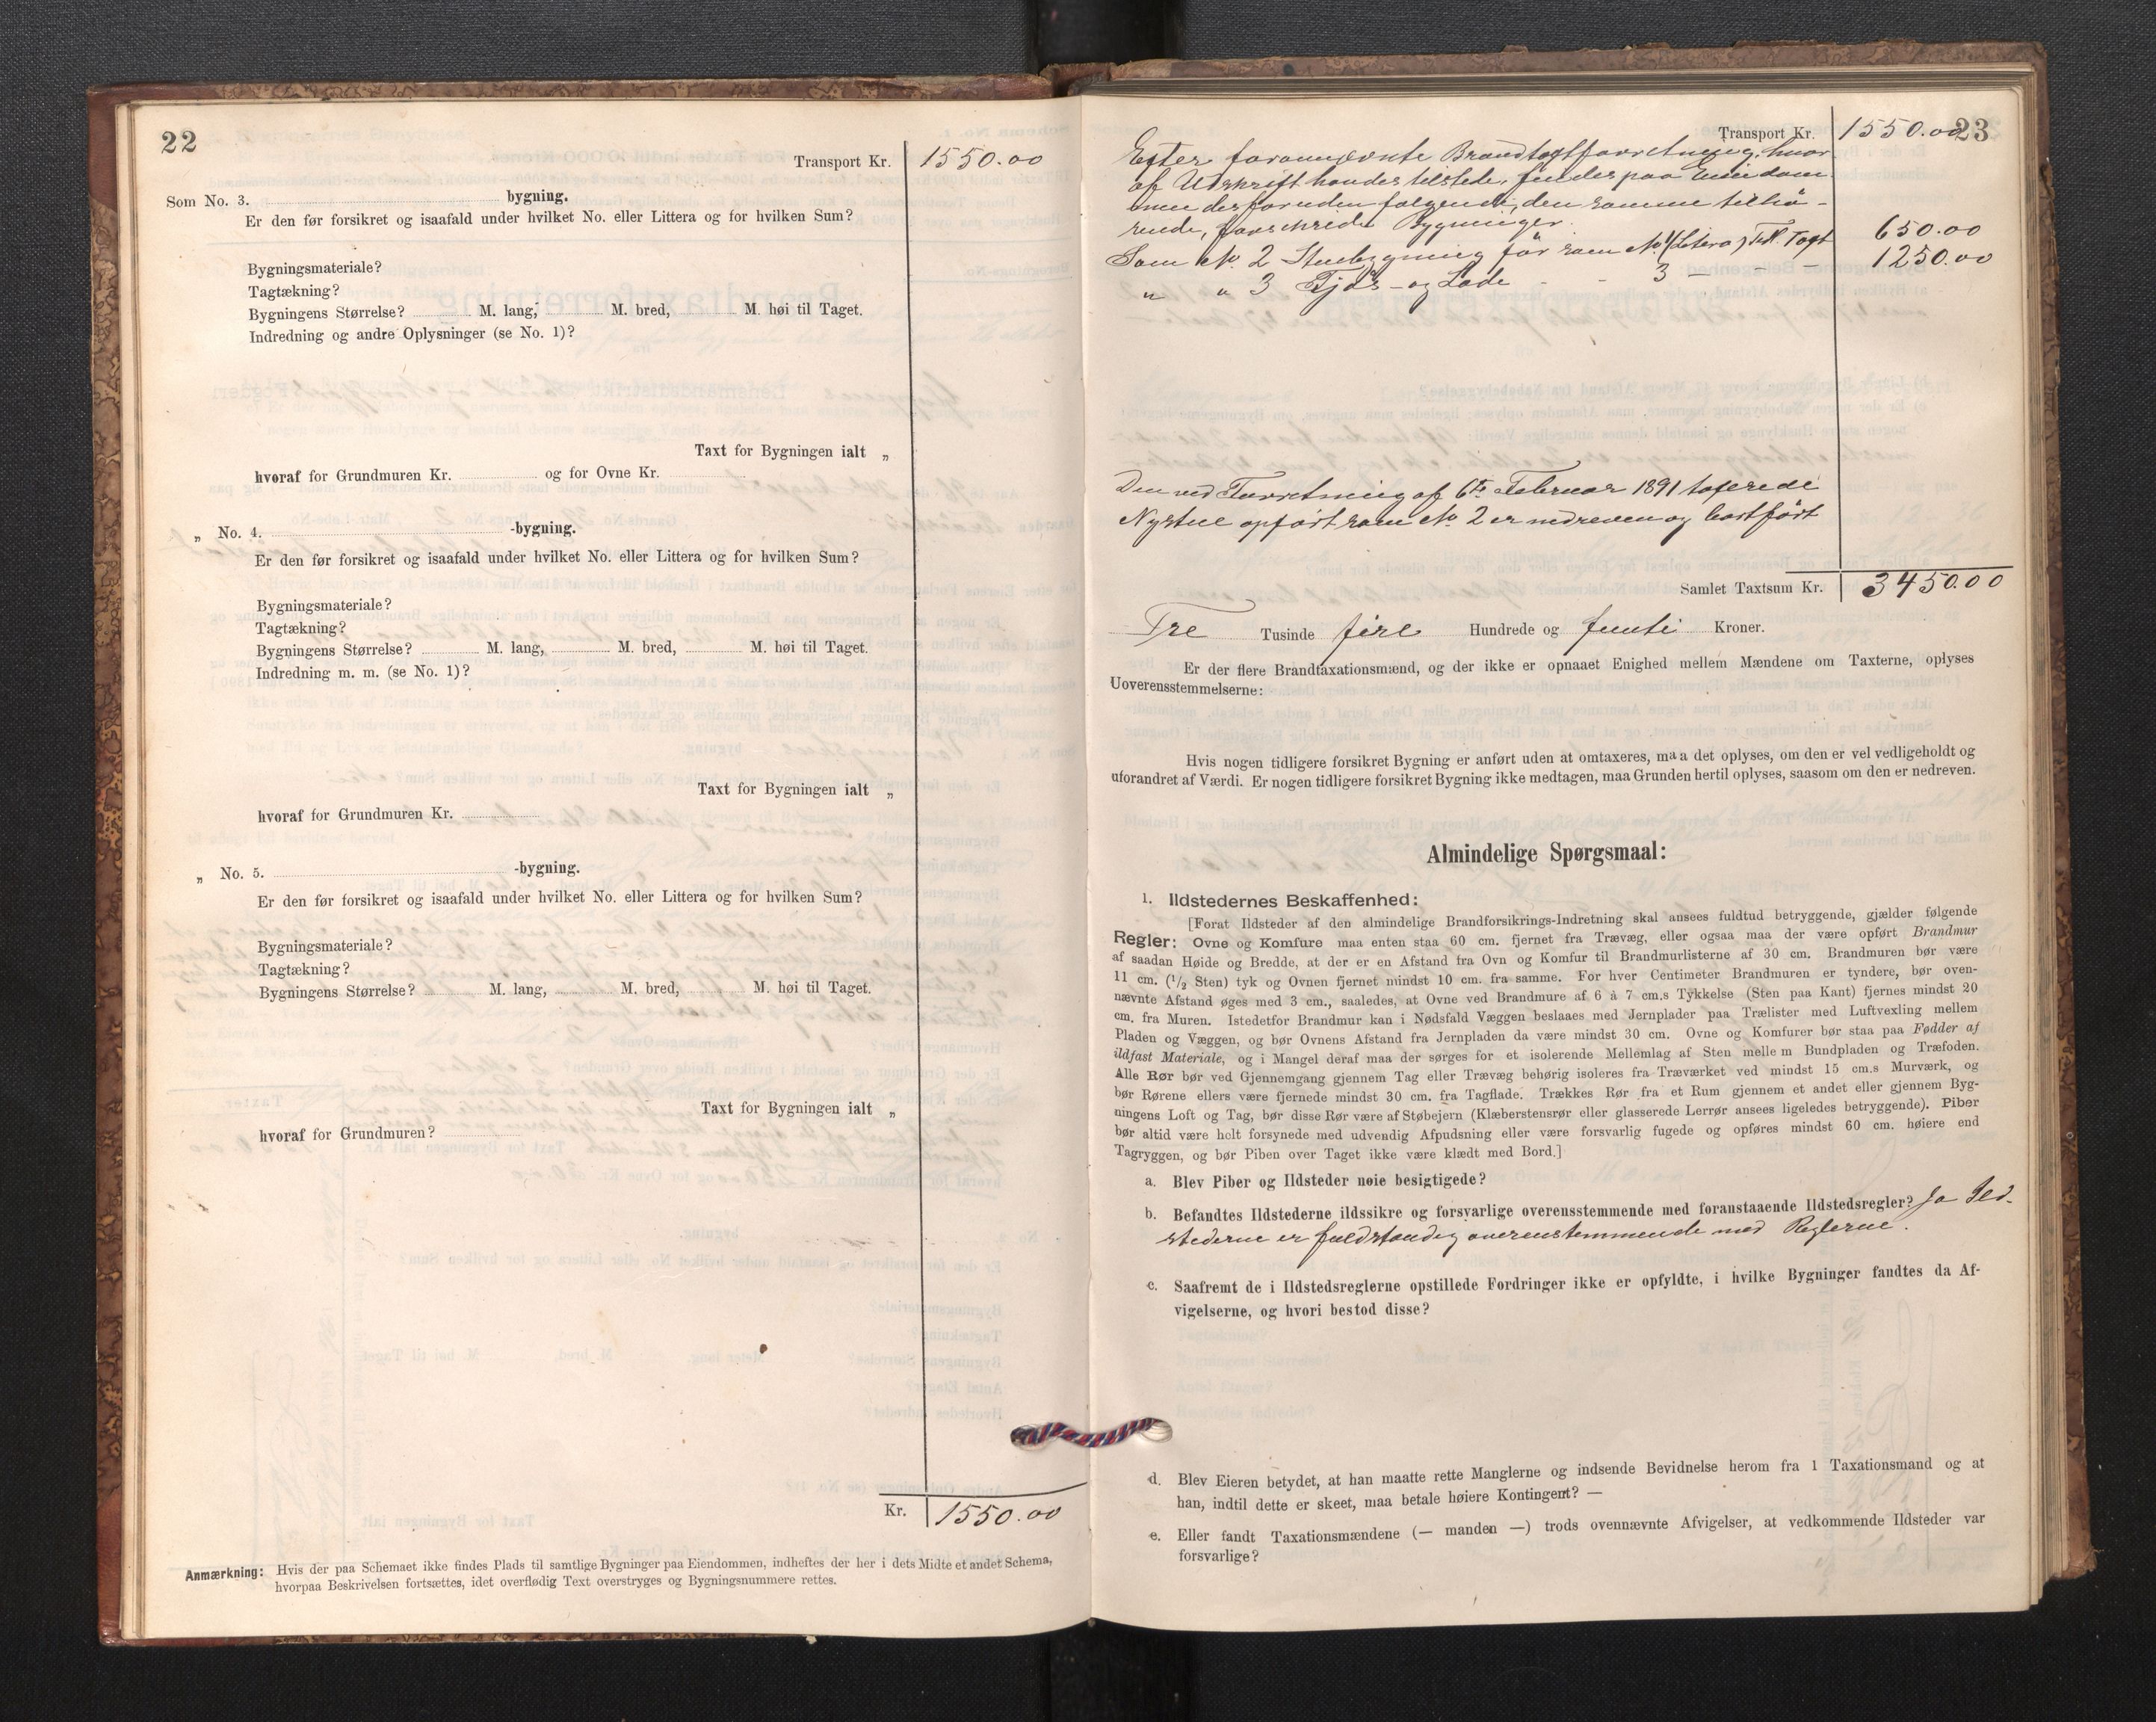 22
Transport Kr. 1550.00
Som No. 3. bygning.
Er den før forsikret og isaafald under hvilket No. eller Littera og for hvilken Sum?
Bygningsmateriale?
Tagtækning?
Bygningens Størrelse? M. lang, M. bred, M. høi til Taget.
Indredning og andre Oplysninger (se No. 1)?
Taxt for Bygningen ialt „
hvoraf for Grundmuren Kr. og for Ovne Kr.
„ No. 4. -bygning.
Er den før forsikret og isaafald under hvilket No. eller Littera og for hvilken Sum?
Bygningsmateriale?
Tagtækning?
Bygningens Størrelse? M. lang, M. bred, M. høi til Taget.
Indredning m. m. (se No. 1)?
Taxt for Bygningen ialt „
hvoraf for Grundmuren Kr.
„ No. 5. -bygning.
Er den før forsikret og isaafald under hvilket No. eller Littera og for hvilken Sum?
Bygningsmateriale?
Tagtækning?
Bygningens Størrelse? M. lang, M. bred, M. høi til Taget.
Taxt for Bygningen ialt „
hvoraf for Grundmuren?
Kr. 1550.00
Anmærkning: Hvis der paa Schemaet ikke findes Plads til samtlige Bygninger paa Eiendommen, indheftes der her i dets Midte et andet Schema,
hvorpaa Beskrivelsen fortsættes, idet overflødig Text overstryges og Bygningsnummere rettes.
23
Transport Kr. 1550.00
Efter forannævnte Brandtaxtforretning, hvor
af Udskrift havdes tilstede, findes paa Eiendom
men desforuden følgende, den samme tilhø-
rende, Bygninger.
Som No. 2 Stuebygning før som No 1 (Litera) Taxt 650.00
„ „ 3 Fjøs- og Lade - - 3 - - - 1250.00
Den ved Forretning af 6te Februar 1891 taxerede
Nystue opført som No 2 er nedreven og bortført
Samlet Taxtsum Kr. 3450.00
Tre Tusinde fire Hundrede og femti Kroner.
Er der flere Brandtaxationsmænd, og der ikke er opnaaet Enighed mellem Mændene om Taxterne, oplyses
Uoverensstemmelserne:
Hvis nogen tidligere forsikret Bygning er anført uden at omtaxeres, maa det oplyses, om den er vel vedligeholdt og
uforandret af Værdi. Er nogen tidligere forsikret Bygning ikke medtagen, maa Grunden hertil oplyses, saasom om den er nedreven.
Almindelige Spørgsmaal:
1. Ildstedernes Beskaffenhed:
[Forat Ildsteder af den almindelige Brandforsikrings-Indretning skal ansees fuldtud betryggende, gjælder følgende
Regler: Ovne og Komfure maa enten staa 60 cm. fjernet fra Trævæg, eller ogsaa maa der være opført Brandmur
af saadan Høide og Bredde, at der er en Afstand fra Ovn og Komfur til Brandmurlisterne af 30 cm. Brandmuren bør være
11 cm. (1/2 Sten) tyk og Ovnen fjernet mindst 10 cm. fra samme. For hver Centimeter Brandmuren er tyndere, bør oven-
nævnte Afstand øges med 3 cm., saaledes, at Ovne ved Brandmure af 6 à 7 cm.s Tykkelse (Sten paa Kant) fjernes mindst 20
cm. fra Muren. Istedetfor Brandmur kan i Nødsfald Væggen beslaaes med Jernplader paa Trælister med Luftvexling mellem
Pladen og Væggen, og bør Ovnens Afstand fra Jernpladen da være mindst 30 cm. Ovne og Komfurer bør staa paa Fødder af
ildfast Materiale, og i Mangel deraf maa der sørges for et isolerende Mellemlag af Sten mellem Bundpladen og Træfoden.
Alle Rør bør ved Gjennemgang gjennem Tag eller Trævæg behørig isoleres fra Træværket ved mindst 15 cm.s Murværk, og
bør Rørene ellers være fjernede mindst 30 cm. fra Tagflade. Trækkes Rør fra et Rum gjennem et andet eller gjennem Byg-
ningens Loft og Tag, bør disse Rør være af Støbejern (Klæberstensrør eller glasserede Lerrør ansees ligeledes betryggende). Piber
bør altid være helt forsynede med udvendig Afpudsning eller være forsvarlig fugede og opføres mindst 60 cm. høiere end
Tagryggen, og bør Piben over Taget ikke være klædt med Bord.]
a. Blev Piber og Ildsteder nøie besigtigede?
b. Befandtes Ildstederne ildssikre og forsvarlige overensstemmende med foranstaaende Ildstedsregler? Ja Ild-
stederne er fuldstændig overenstemmende med Reglerne.
c. Saafremt de i Ildstedsreglerne opstillede Fordringer ikke er opfyldte, i hvilke Bygninger fandtes da Af-
vigelserne, og hvori bestod disse?
d. Blev Eieren betydet, at han maatte rette Manglerne og indsende Bevidnelse herom fra 1 Taxationsmand og at
han, indtil dette er skeet, maa betale høiere Kontingent? —
e. Eller fandt Taxationsmændene (— manden —) trods ovennævnte Afvigelser, at vedkommende Ildsteder var
forsvarlige?